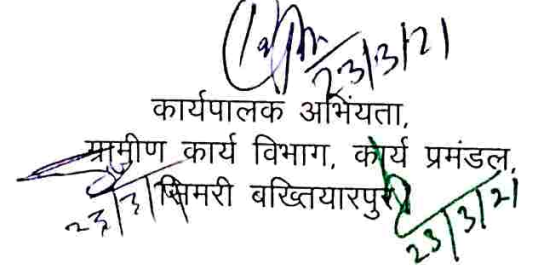 23/3/21
कार्यपालक अभिंयता,
ग्रामीण कार्य विभाग, कार्य प्रमंडल,
सिमरी बख्तियारपुर
23/3/21
23/3/21